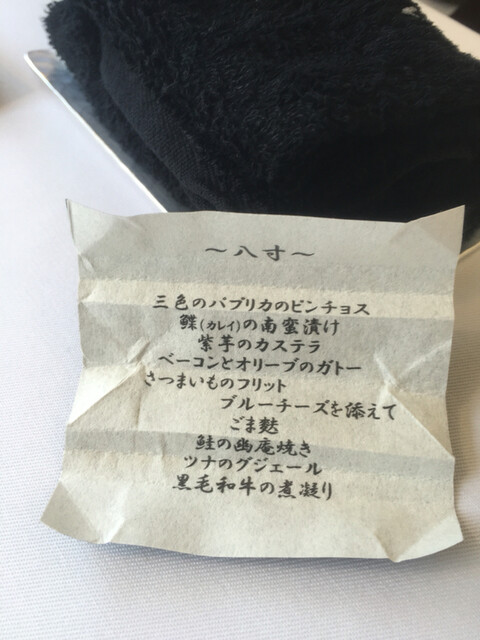 ～八寸～
三色のパプリカのピンチョス
鰈(カレイ)の南蛮漬け
紫芋のカステラ
ベーコンとオリーブのガトー
さつまいものフリット
ブルーチーズを添えて
ごま麩
鮭の幽庵焼き
ツナのグジェール
黒毛和牛の煮凝り